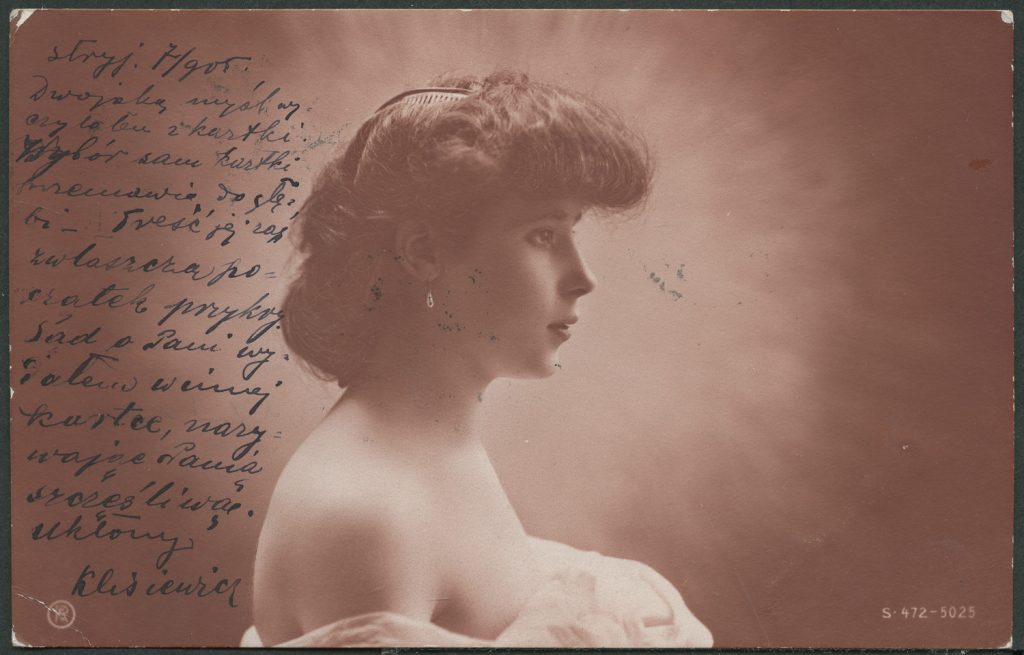 Stryj. 7/905.
Dwojaką myśl wy-
czytałem z kartki.
Wybór sam kartki
przemawia do głę-
bi — Treść jej zaś
zwłaszcza po-
czątek przykry.
Sąd o Pani wy-
dałem w innej
kartce, nazy-
wając Panią
szczęśliwą.
Ukłony
Kliśiewicz
S·472-5025